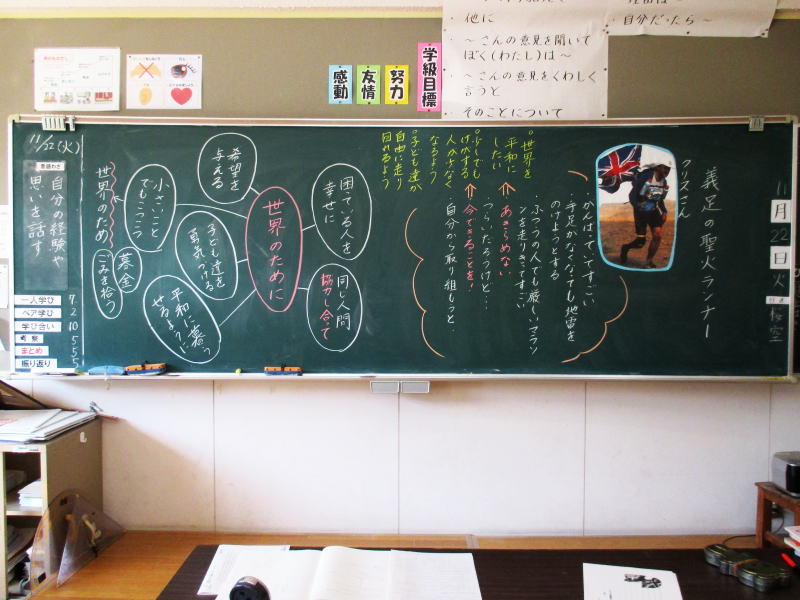 他に
・自分だったら～
・～さんの意見を聞いて
ぼく(わたし)は～
・～さんの意見をくわしく
言うと
・そのことについて
学級目標
努力
友情
感動
11月22日火
桜空
義足の聖火ランナー
クリスさん
・がんばっていてすごい
・手足がなくなっても地雷を
のけようとする
・ふつうの人でも厳しいマラソ
ンを走りきってすごい
あきらめない
・つらいだろうけど…
今できることを!
・自分から取り組もうと…
◦世界を
平和に
したい
◦少しでも
けがする
人が少なく
なるよう
◦子ども達が
自由に走り
回れるよう
世界のために
困っている人を
幸せに
同じ人間
協力し合って
希望を
与える
子ども達を
勇気づける
平和に暮らせるように
小さいこと
でもこつこつ
募金
ごみを拾う
世界のため
11/22(火)
自分の経験や
思いを話す
一人学び 7
ペア学び 2
学び合い 10
考察 5
まとめ 5
振り返り 5